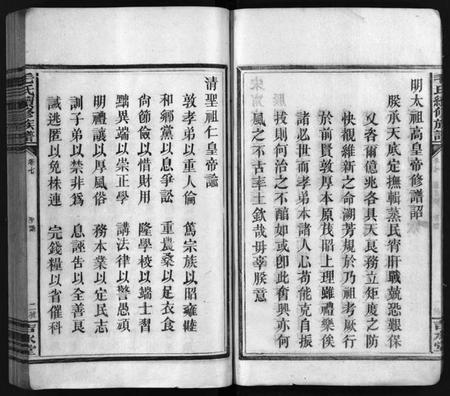 明太祖高皇帝修譜詔
朕承天底定撫輯蒸民宵旰戰兢恐艱保
又咨爾億兆各具天良務立矩度之防
快覩維新之命溯芳規於乃祖考厥行
於前賢敦厚本原茂昭上理雖禮樂俟
諸必世而孝弟本諸人心苟能克自振
拔則何治之不酷如或卽此奮興亦何
風之不古事主欽哉毋辜朕意
清聖祖仁皇帝諭
敦孝弟以重人倫 篤宗族以昭雍睦
和鄉黨以息爭訟 重農桑以足衣食
尙節儉以惜財用 隆學校以端士習
黜異端以崇正學 講法律以警愚頑
明禮讓以厚風俗 務本業以定民志
訓子弟以禁非爲 息誣告以全善良
誡逃匿以免株連 完錢糧以省催科
毛氏續修族譜
卷七
二
西河堂